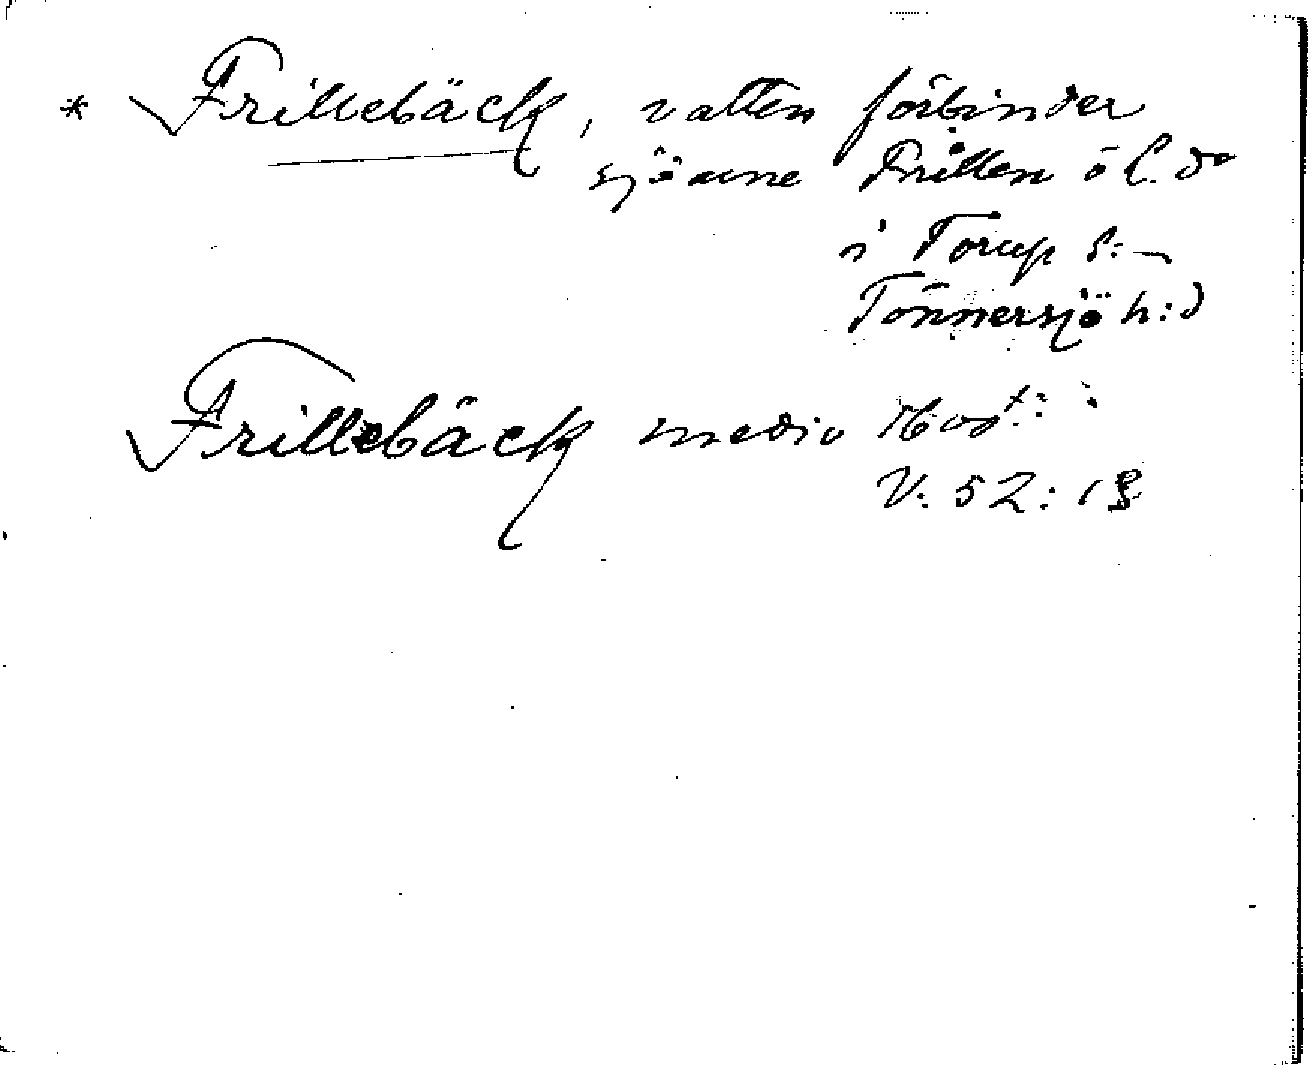 * Frillebäck, vatten förbinder
sjöarne Frillen ö l. do
i Torup s:
Tönnersjö h:d
Frillebäck medio
V: 52: 18